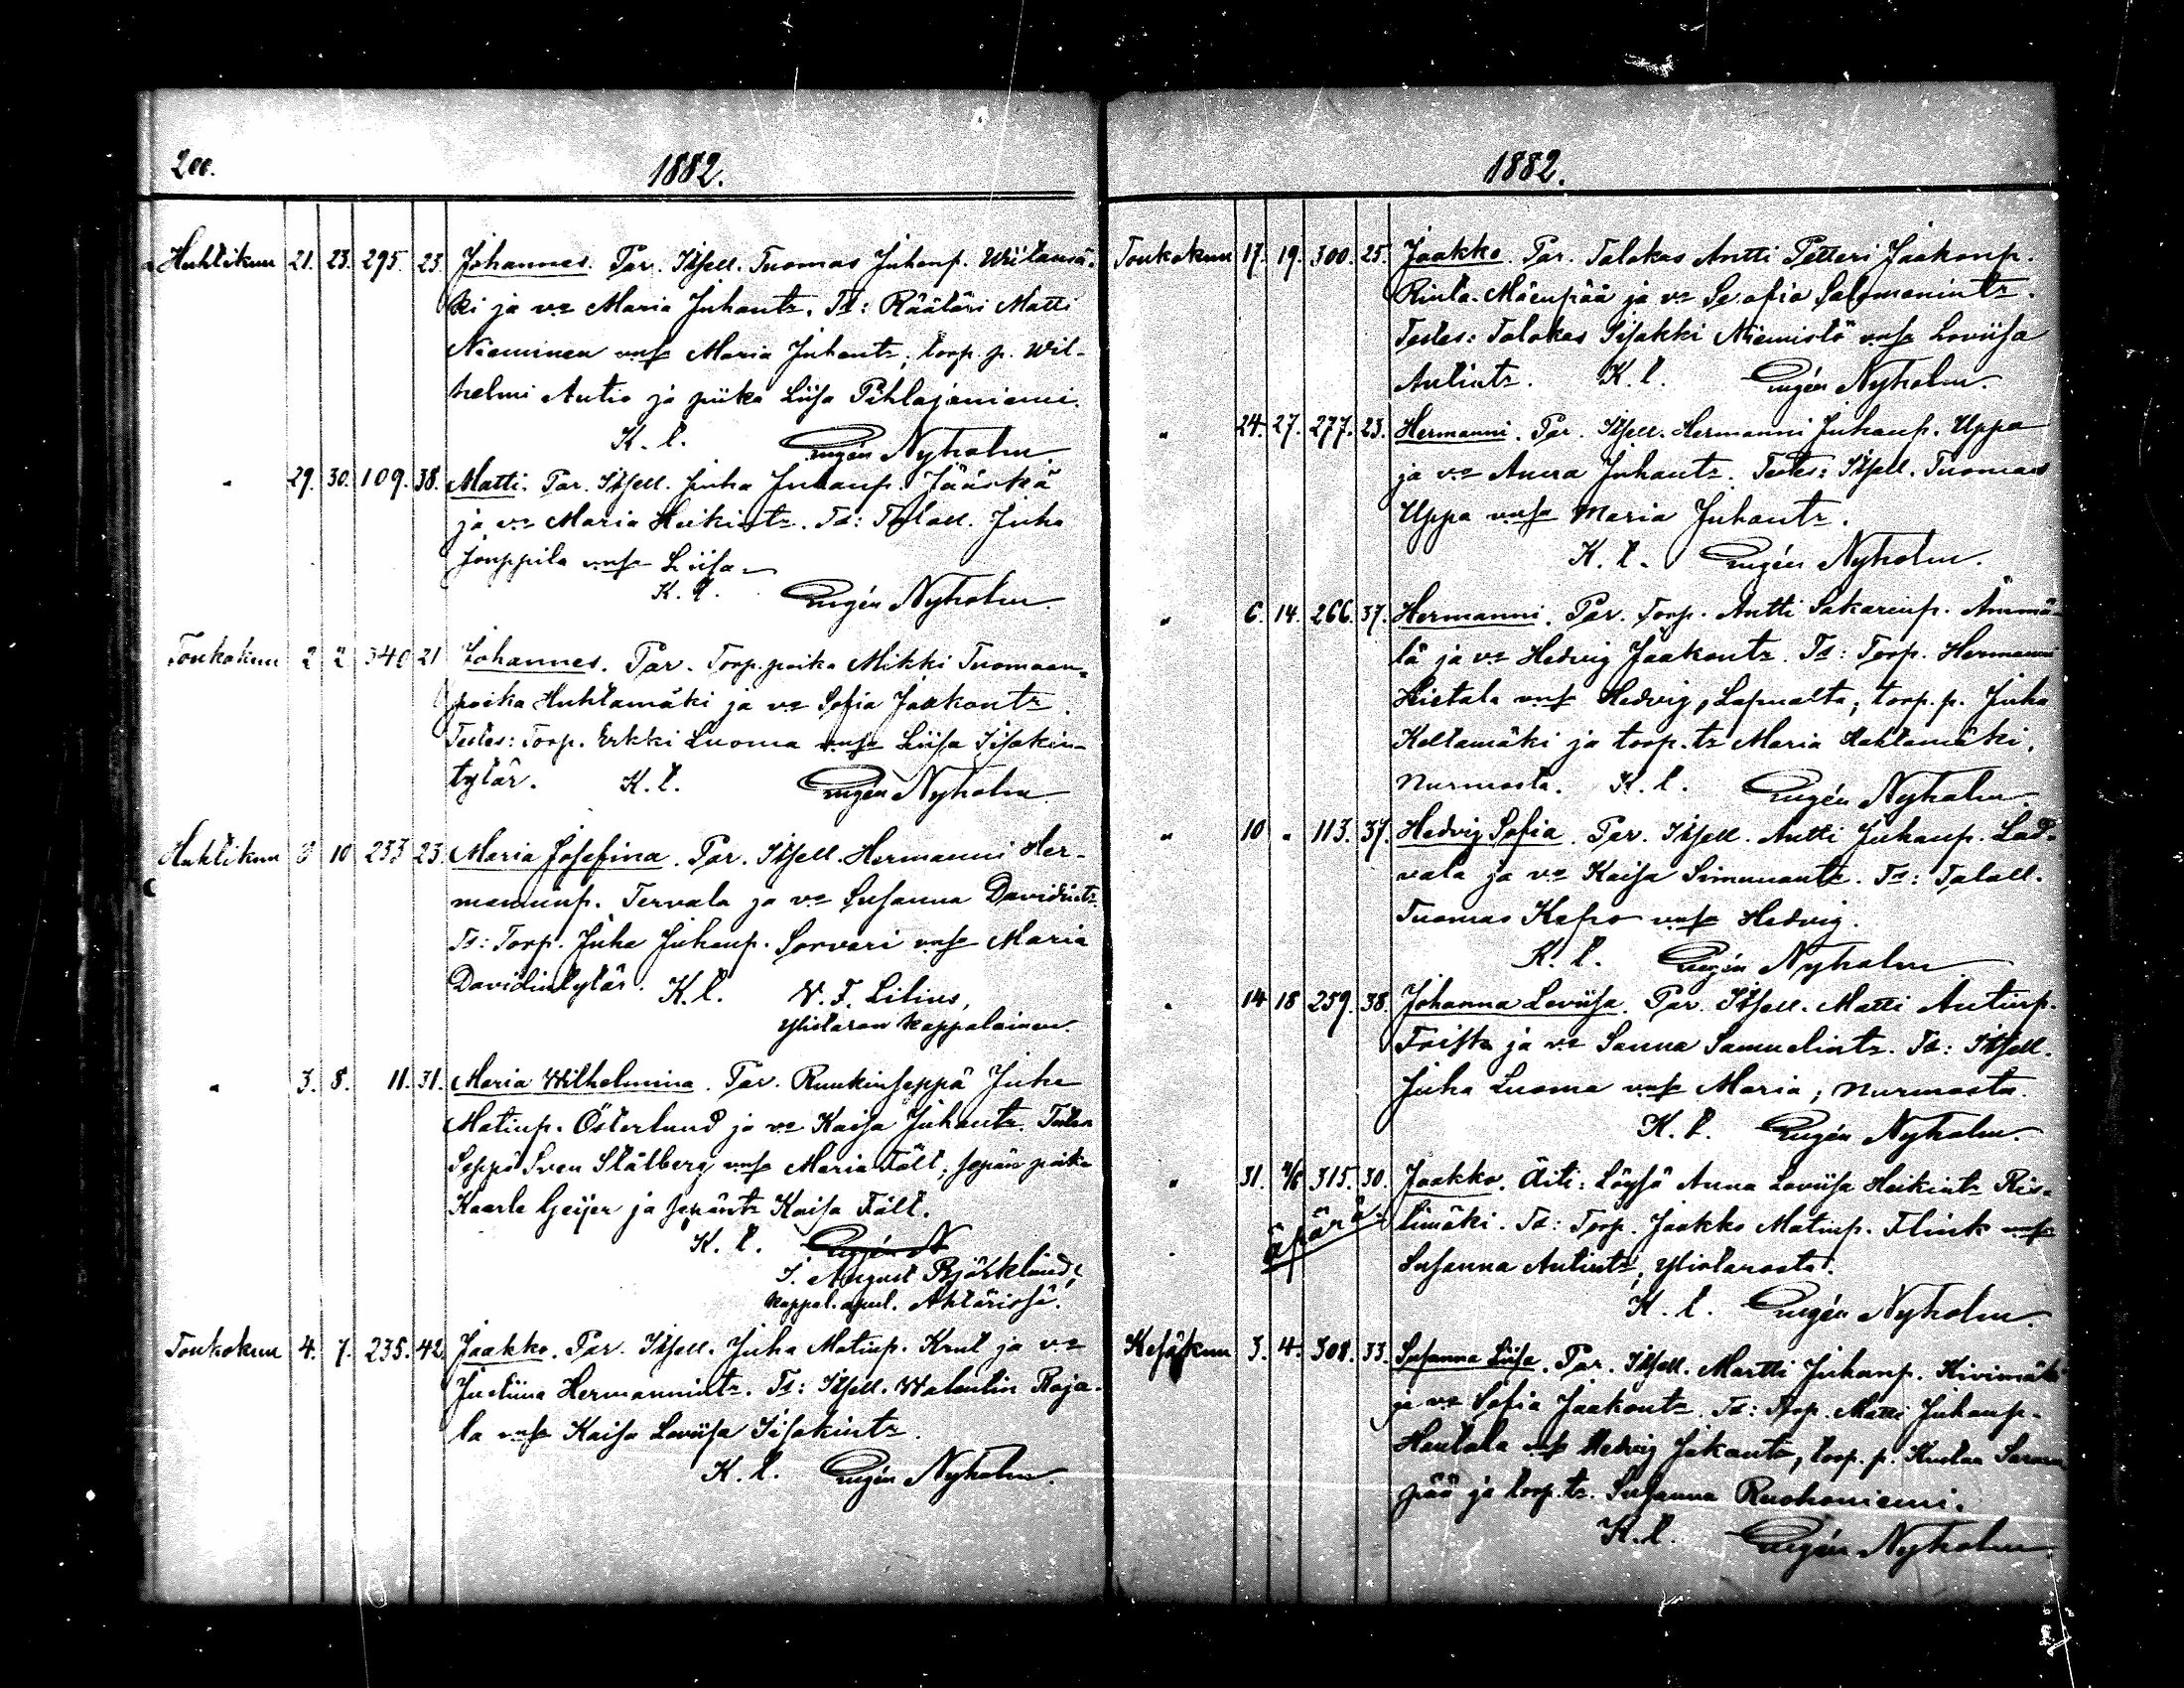 200.
1882.
Huhtikuu 21. 23. 295. 23. Johannes. Par. Itsell. Tuomas Juhanp. Wiitamä-
ki ja vo Maria Juhantr. Ts: Räätäri Matti
Nieminen vmsa Maria Juhantr, torp. p. Wil-
helmi Autio ja piika Liisa Pihlajaniemi.
K. l. Eugén Nyholm
" 29. 30. 109. 38. Matti. Par. Itsell. Juha Juhanp. Jääskä
ja vo Maria Heikintr. Ts: Talall. Juha
Jouppila vmsa Liisa
K. l. Eugén Nyholm.
Toukokuu 2 2 340 21 Johannes. Par. Torp. poika Mikki Tuomaan-
poika Huhtamäki ja vo Sofia Jaakontr.
Testes: Torp. Erkki Luoma vmsa Liisa Iisakin-
tytär. K. l. Eugén Nyholm
Huhtikuu 3 10 233 23. Maria Josefina. Par. Itsell. Hermanni Her-
manninp. Tervala ja vo Susanna Davidintr.
Ts: Torp. Juha Juhanp. Sorvari vmsa Maria
Davidintytär. K. l. V. F. Lilius,
Ylistaron kappalainen.
" 3. 8. 11. 31. Maria Wilhelmina. Par. Ruukinseppä Juha
Matinp. Österlund ja vo Kaisa Juhantr. Testes
Seppä Sven Stålberg vmsa Maria Fält, sepän poika
Kaarle Geijer ja sepäntr Kaisa Fält.
K. l. Eugén N
J. August Björklund,
kappal. apul. Ähtärissä.
Toukokuu 4. 7. 235. 42. Jaakko. Par. Itsell. Juha Matinp. Krut ja vo
Justiina Hermannintr. Ts: Itsell. Walentin Raja-
la vmsa Kaisa Loviisa Iisakintr.
K. l. Eugén Nyholm.
1882.
Toukokuu 17. 19. 300. 25. Jaakko. Par. Talokas Antti Petteri Jaakonp.
Rinta-Mäenpää ja vo Serafia Salomonintr.
Testes: Talokas Iisakki Niemistö vmsa Loviisa
Antintr. K. l. Eugén Nyholm.
" 24. 27. 277. 23. Hermanni. Par. Itsell. Hermanni Juhanp. Uppa
ja vo Anna Juhantr. Testes: Itsell. Tuomas
Uppa vmsa Maria Juhantr.
K. l. Eugén Nyholm.
" 6. 14. 266. 37. Hermanni. Par. Torp. Antti Sakarinp. Ämmä-
lä ja vo Hedvig Jaakontr. Ts: Torp. Hermanni
Hietala vmsa Hedvig, Lapualta; torp. p. Juha
Keltamäki ja torp. tr Maria Lahtamäki,
Nurmosta. K. l. Eugén Nyholm.
" 10 " 113. 37. Hedvig Sofia. Par. Itsell. Antti Juhanp. Lad-
vala ja vo Kaisa Simunantr. Ts: Talall.
Tuomas Kapso vmsa Hedvig.
K. l. Eugén Nyholm
" 14 18 259. 38. Johanna Loviisa. Par. Itsell. Matti Antinp.
Foista ja vo Sanna Samuelintr. Ts: Itsell.
Juha Luoma vmsa Maria; Nurmosta.
K. l. Eugén Nyholm.
" 31. 4/6 315. 30. Jaakko. Äiti: Löysä Anna Loviisa Heikintr Ris-
äpärä timäki. Ts: Torp. Jaakko Matinp. Flink vmsa
Susanna Antintr; Ylistarosta.
K. l. Eugén Nyholm.
Kesäkuu 3. 4. 308. 33. Susanna Liisa. Par. Itsell. Martti Juhanp. Kivimäki
ja vo Sofia Jaakontr. Ts: Torp. Matti Juhanp.
Hautala vmsa Hedvig Jaakontr, torp. p. Kustaa Saran
pää ja torp. tr. Susanna Ruohoniemi.
K. l. Eugén Nyholm